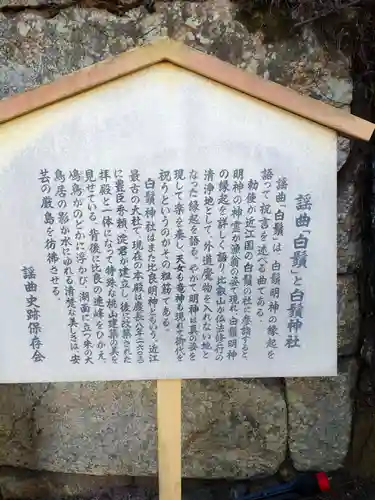 謡曲「白鬚」と白鬚神社
謡曲「白鬚」は、白鬚明神の縁起を
語って祝言を述べる曲である。
勅使が近江国の白鬚の社に参詣すると
明神の神霊が漁翁の姿で現れ、白鬚明神
の縁起を詳しく語り、比叡山が仏法修行の
清浄地として、外道魔物を入れない地と
なった縁起を語る。やがて明神は真の姿を
現して楽を奏し、天女も竜神も現れて御代を
祝うというのがその粗筋である。
白鬚神社はまた比良明神ともいう。近江
最古の大社で、現在の本殿は慶長八年(1603)
に豊臣秀頼、淀君が建立し、後に改築された
拝殿と一体になって特殊な桃山建築の美を
見せている。背後に比良の連峰をひかえ
鳰鳥がのどかに浮かび、湖面に立つ朱の大
鳥居の影が水にゆれる清楚な美しさは、安
芸の厳島を彷彿させる。
謡曲史跡保存会